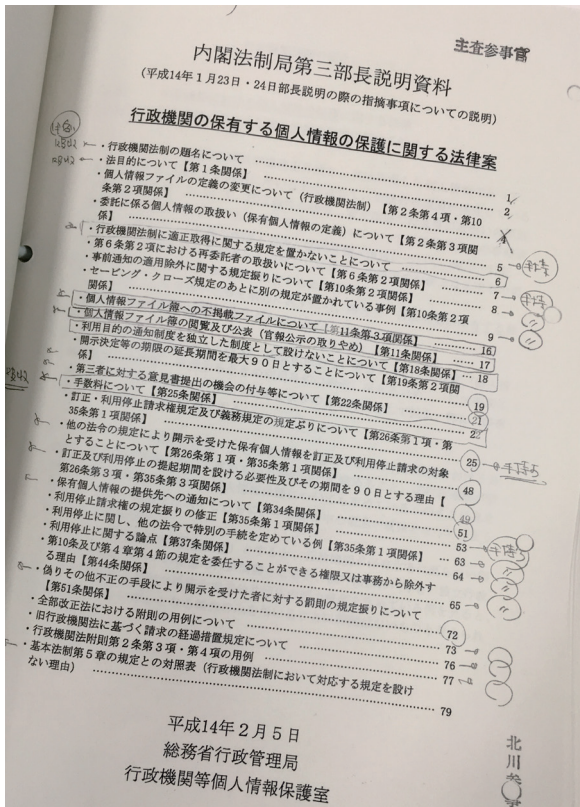 主査参事官
内閣法制局第三部長説明資料
(平成14年1月23日・24日部長説明の際の指摘事項についての説明)
行政機関の保有する個人情報の保護に関する法律案
・行政機関法制の題名について 1
・法目的について【第1条関係】 2
・個人情報ファイルの定義の変更について(行政機関法制)【第2条第4項・第10
条第2項関係】
・委託に係る個人情報の取扱い(保有個人情報の定義)について【第2条第3項関
係】 5
・行政機関法制に適正取得に関する規定を置かないことについて 6
・第6条第2項における再委託者の取扱いについて【第6条第2項関係】 7
・事前通知の適用除外に関する規定振りについて【第10条第2項関係】 8
・セービング・クローズ規定のあとに別の規定が置かれている事例【第10条第2項
関係】 9
・個人情報ファイル簿への不掲載ファイルについて【第11条第3項関係】 16
・個人情報ファイル簿の閲覧及び公表(官報公示の取りやめ)【第11条関係】 17
・利用目的の通知制度を独立した制度として設けないことについて【第18条関係】 18
・開示決定等の期限の延長期間を最大90日とすることについて【第19条第2項関
係】 19
・第三者に対する意見書提出の機会の付与等について【第22条関係】 21
・手数料について【第25条関係】
・訂正・利用停止請求権規定及び義務規定の規定ぶりについて【第26条第1項・第
35条第1項関係】 25
・他の法令の規定により開示を受けた保有個人情報を訂正及び利用停止請求の対象
とすることについて【第26条第1項・第35条第1項関係】 48
・訂正及び利用停止の提起期間を設ける必要性及びその期間を90日とする理由【
第26条第3項・第35条第3項関係】 49
・保有個人情報の提供先への通知について【第34条関係】 51
・利用停止請求権の規定振りの修正【第35条第1項関係】 53
・利用停止に関し、他の法令で特別の手続を定めている例【第35条第1項関係】 63
・利用停止に関する論点【第37条関係】 64
・第10条及び第4章第4節の規定を委任することができる権限又は事務から除外す
る理由【第44条関係】 65
・偽りその他不正の手段により開示を受けた者に対する罰則の規定振りについて
【第51条関係】 72
・全部改正法における附則の用例について 73
・旧行政機関法に基づく請求の経過措置規定について 76
・行政機関法附則第2条第3項・第4項の用例 77
・基本法制第5章の規定との対照表(行政機関法制において対応する規定を設け
ない理由) 79
平成14年2月5日
総務省行政管理局
行政機関等個人情報保護室
北川